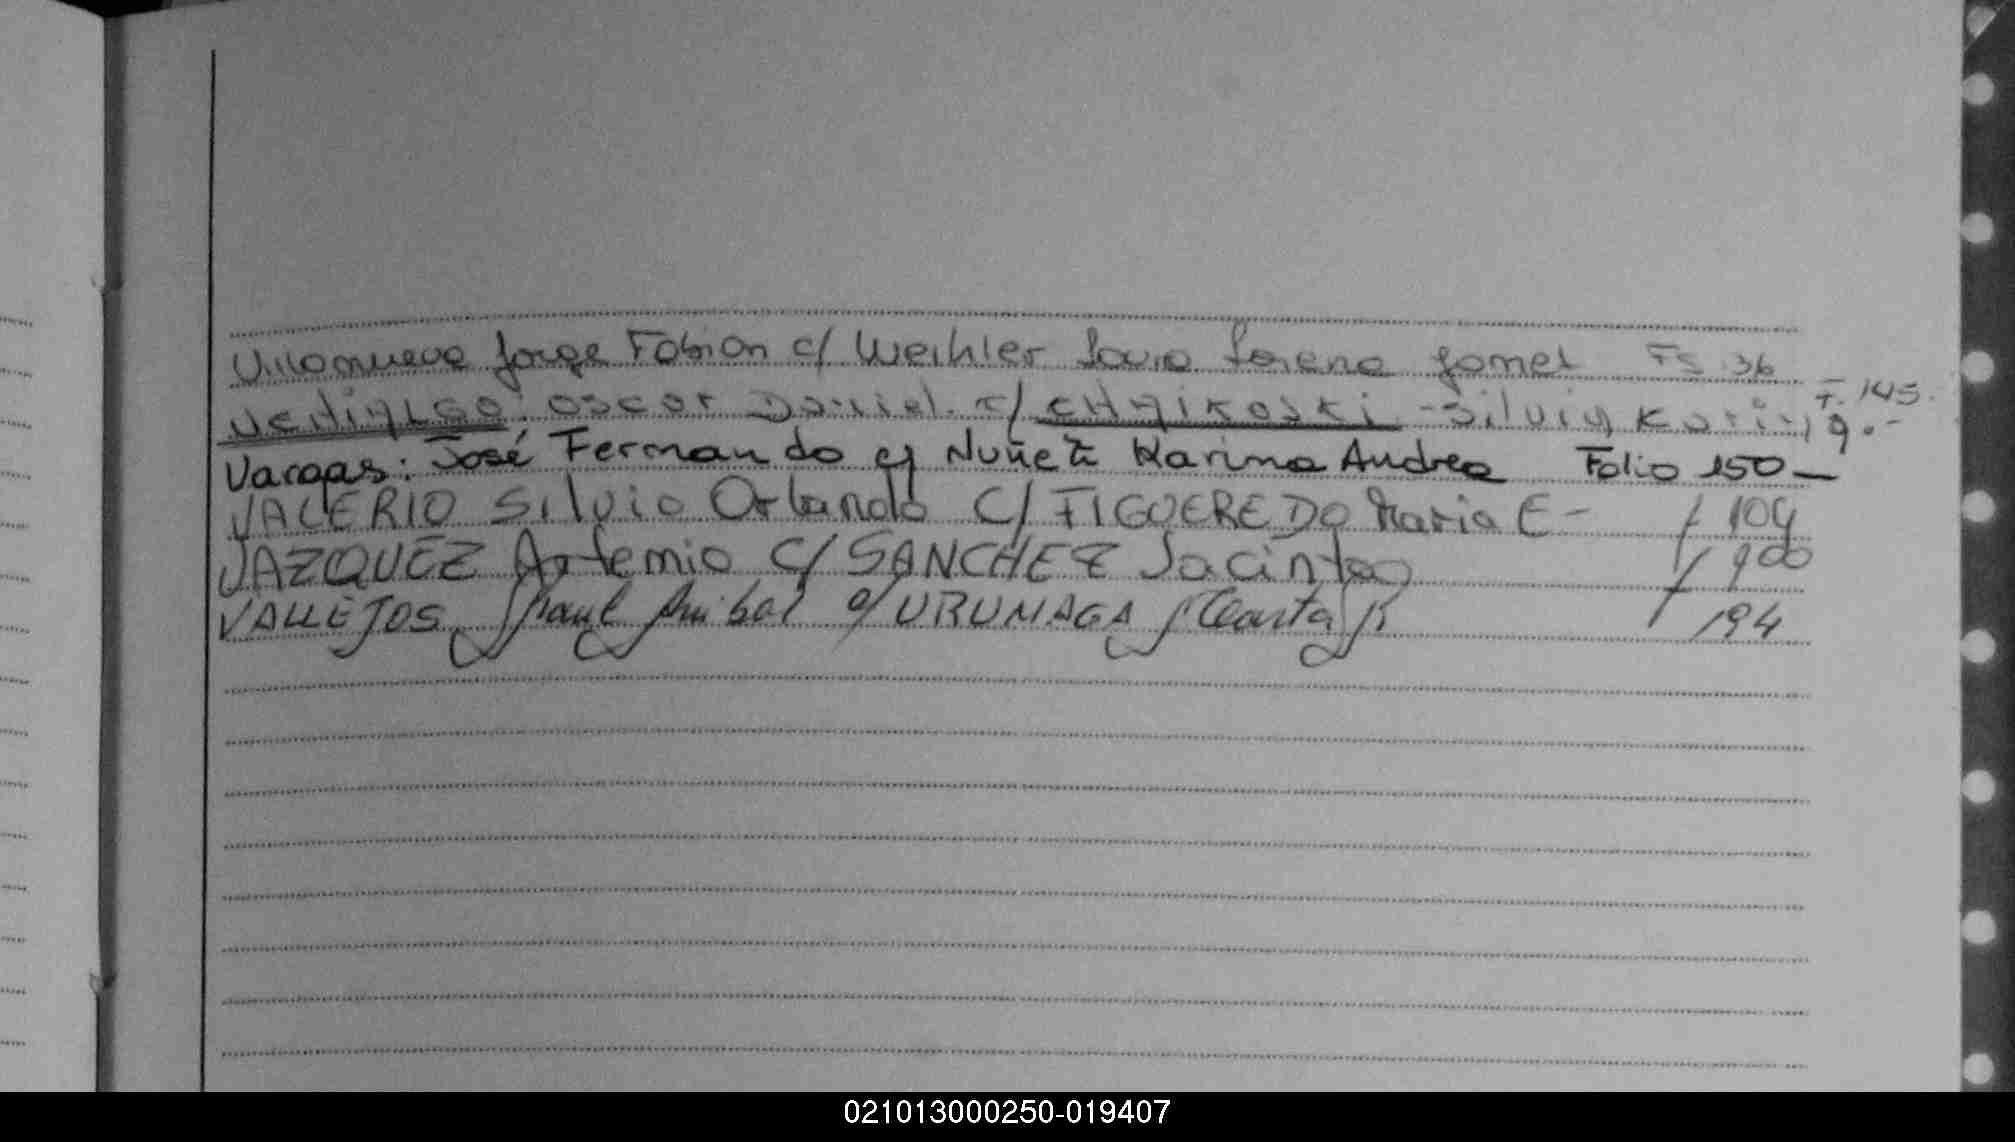 Villanueva Jorge Fabian c/ Weihler Lorena Fs 36
Oscar Daniel c/ Silvia Karina.- F. 145.
Vargas: José Fernando c/ Nuñez Karina Andrea Folio 150-
VALERIO Silvio Orlando C/ FIGUEREDO Maria E- f 109
VAZQUEZ Artemio C/ SANCHEZ Jacinta f 900
VALLEJOS, Raul Anibal c/ URUNAGA, Marta f 194
021013000250-019407